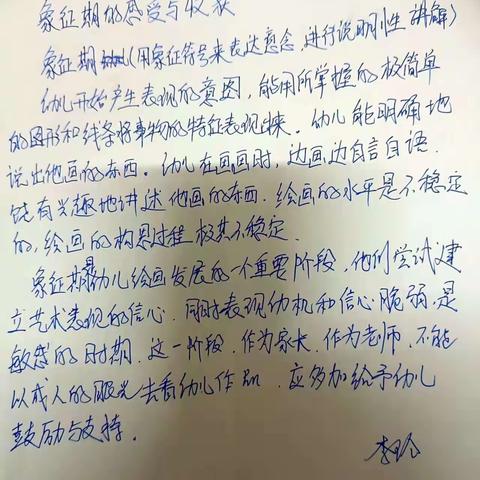 象征期的感受与收获
象征期(用象征符号来表达意念,进行说明性讲解)
幼儿开始产生表现的意图,能用所掌握的极简单
的图形和线条将事物的特征表现出来.幼儿能明确地
说出他画的东西.幼儿在画画时,边画边自言自语.
饶有兴趣地讲述他画的东西.绘画的水平是不稳定
的,绘画的构思过程极其不稳定.
象征期是幼儿绘画发展的一个重要阶段,他们尝试建
立艺术表现的信心.同时表现动机和信心脆弱,是
敏感的时期.这一阶段.作为家长.作为老师.不能
以成人的眼光去看幼儿作品.应多加给予幼儿
鼓励与支持.